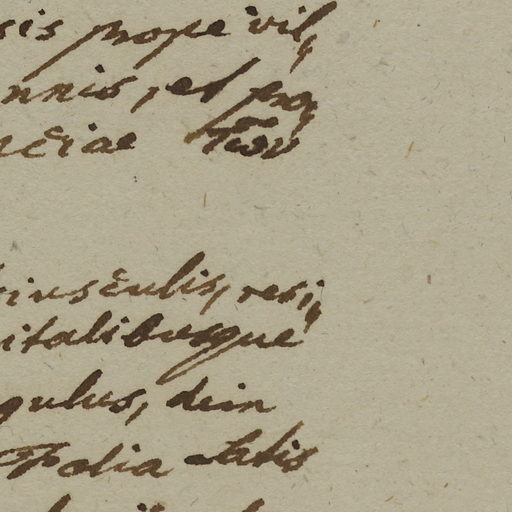 sis prope vil„
nnis, et pro„
nciae Tor
iusculis, resi„
italibusque
gulus, dein
Folia latis